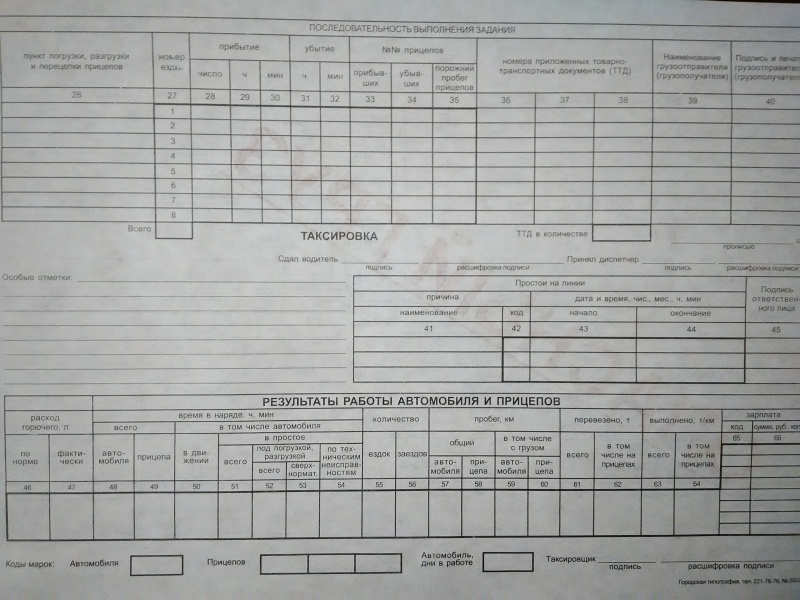 ПОСЛЕДОВАТЕЛЬНОСТЬ ВЫПОЛНЕНИЯ ЗАДАНИЯ
пункт погрузки, разгрузки и перецепки прицепов
номер ездки
прибытие
число ч мин
убытие
ч мин
№№ прицепов
прибывших
убывших
порожний пробег прицепов
номера приложенных товарно-транспортных документов (ТТД)
Наименование грузоотправителя (грузополучателя)
Подпись и печать грузоотправителя (грузополучателя)
26 27 28 29 30 31 32 33 34 35 36 37 38 39 40
1
2
3
4
5
6
7
8
Всего
ТАКСИРОВКА
ТТД в количестве
прописью
Сдал водитель
подпись
расшифровка подписи
Принял диспетчер
подпись
расшифровка подписи
Особые отметки:
Простои на линии
Подпись ответственного лица
причина
дата и время, чис., мес., ч. мин
наименование код начало окончание
41 42 43 44 45
РЕЗУЛЬТАТЫ РАБОТЫ АВТОМОБИЛЯ И ПРИЦЕПОВ
расход горючего, л
по норме
фактически
время в наряде, ч. мин
всего
автомобиля
прицепа
в том числе автомобиля
в движении
в простое
всего
под погрузкой, разгрузкой
всего
сверхнормат.
по техническим неисправностям
количество
ездок
заездов
пробег, км
общий
автомобиля
прицепа
в том числе с грузом
автомобиля
прицепа
перевезено, т
всего
в том числе на прицепах
выполнено, т/км
всего
в том числе на прицепах
зарплата
код
сумма, руб. коп
65 66
46 47 48 49 50 51 52 53 54 55 56 57 58 59 60 61 62 63 64
Коды марок: Автомобиля
Прицепов
Автомобиль, дни в работе
Таксировщик
подпись
расшифровка подписи
Городская типография, тел. 221-76-76,